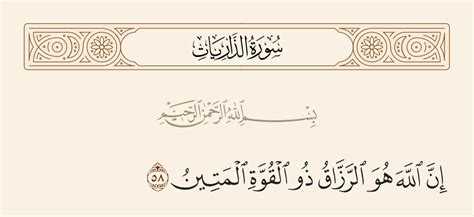 سُورَةُ الذَّارِيَاتِ
بِسْمِ اللَّهِ الرَّحْمَٰنِ الرَّحِيمِ
إِنَّ اللَّهَ هُوَ الرَّزَّاقُ ذُو الْقُوَّةِ الْمَتِينُ ٥٨